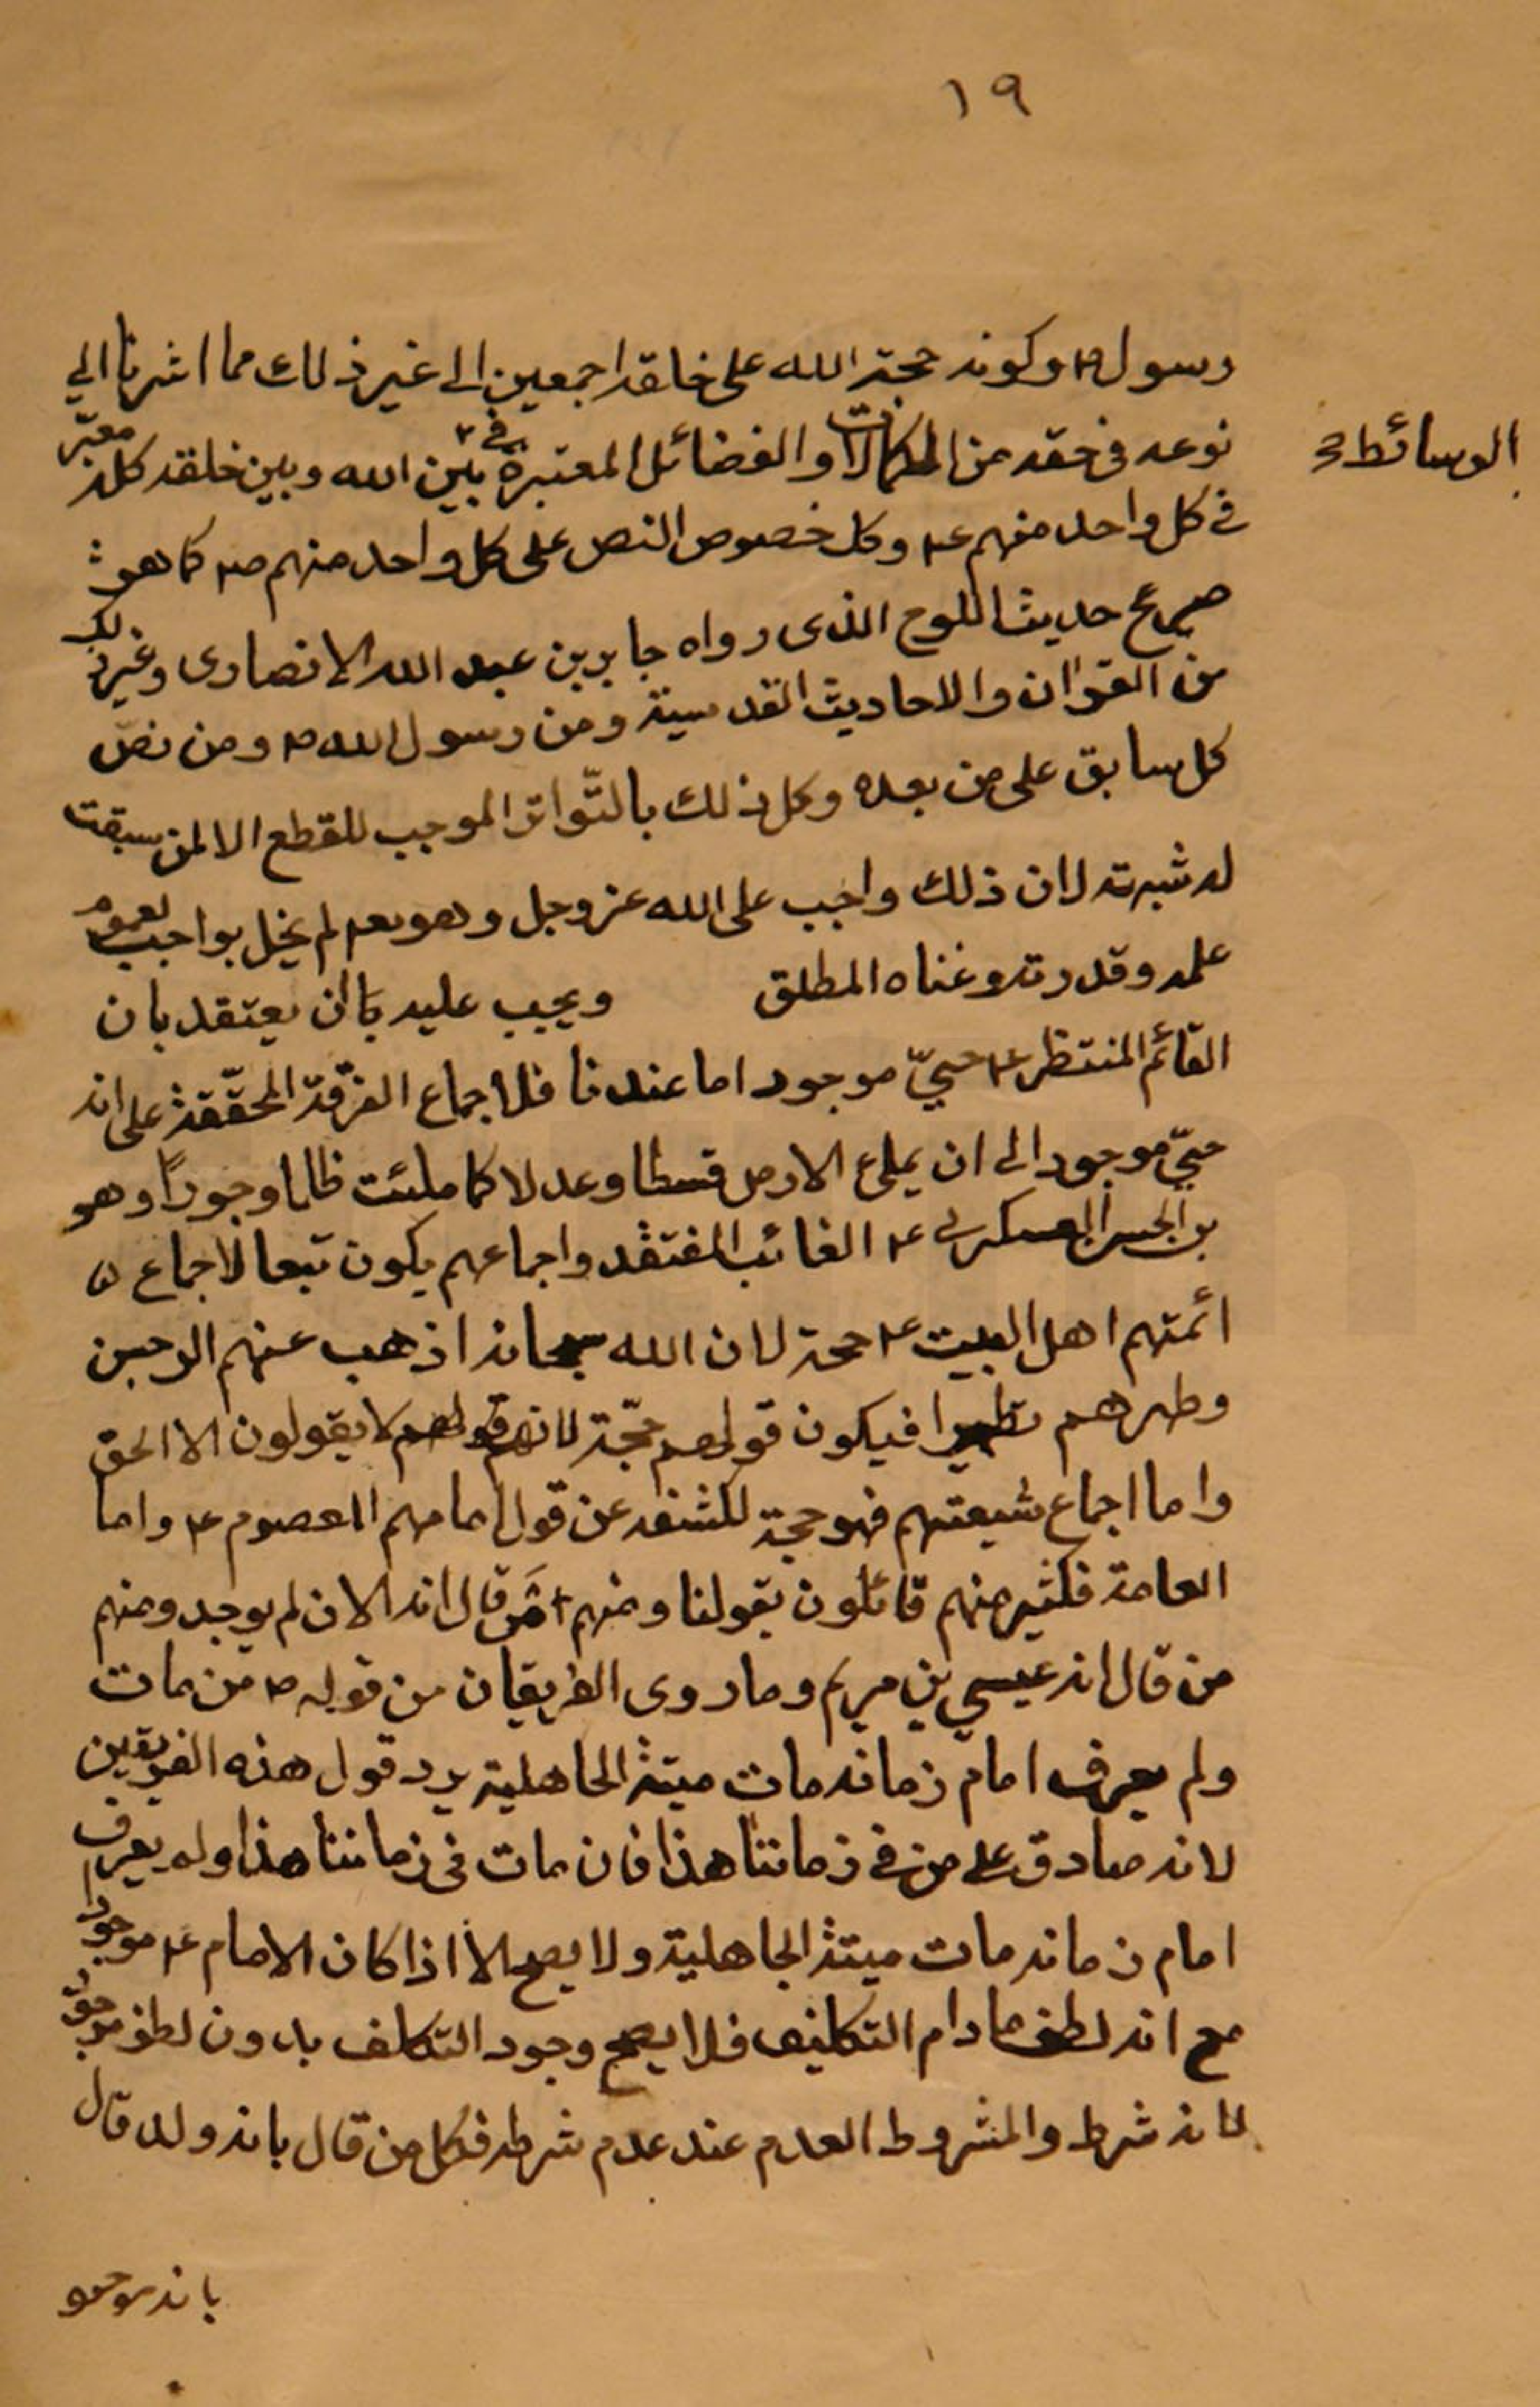 ١٩
رسول ص وكونه حجة الله على خلقه اجمعين الى غير ذلك مما اشرنا الى
نوعه فى حقه من الكمالات والفضائل المعتبرة فى بين الله وبين خلقه كله معتبر
الوسائط صح
فى كل واحد منهم ع وكل خصوص النص على كل واحد منهم ص كما هو
صريح حديث اللوح الذى رواه جابر بن عبد الله الانصارى وغير ذلك
من القرآن والاحاديث القدسية ومن رسول الله ص ومن نصّ
كل سابق على من بعده وكل ذلك بالتّواتر الموجب للقطع الا لمن سبقت
له شبهته لان ذلك واجب على الله عز وجل وهو تعم لم يخل بواجب لعموم
علمه وقدرته وغناه المطلق ويجب عليه بان يعتقد بان
القائم المنتظر ع حيّ موجود اما عندنا فلاجماع الفرقة المحقّقة على انه
حيّ موجود الى ان يملئ الارض قسطا وعدلا كما ملئت ظلما وجورًا وهو
بن الحسن العسكرى ع الغائب المفتقد واجماعهم يكون تبعا لاجماع
ائمتهم اهل البيت ع حجة لان الله سبحانه اذهب عنهم الرجس
وطهرهم تطهيرا فيكون قولهم حجّة لانهم قولهم لا يقولون الا الحق
واما اجماع شيعتهم فهو حجة لكشفه عن قول امامهم المعصوم ع واما
العامة فكثير منهم قائلون بقولنا ومنهم من قال انه الان لم يوجد ومنهم
من قال انه عيسى بن مريم وما روى الفريقان من قوله ص من مات
ولم يعرف امام زمانه مات ميتة الجاهلية يرد قول هذه الفريقين
لانه صادق على من فى زماننا هذا فان مات فى زماننا هذا ولم يعرف
امام زمانه مات ميتة الجاهلية ولا يصح الا اذا كان الامام ع موجودا
مع انه لطف ما دام التكليف فلا يصح وجود التكلف بدون لطف موجود
لانه شرط والمشروط العدم عند عدم شرطه فكل من قال بانه ولد قال
بانه موجود